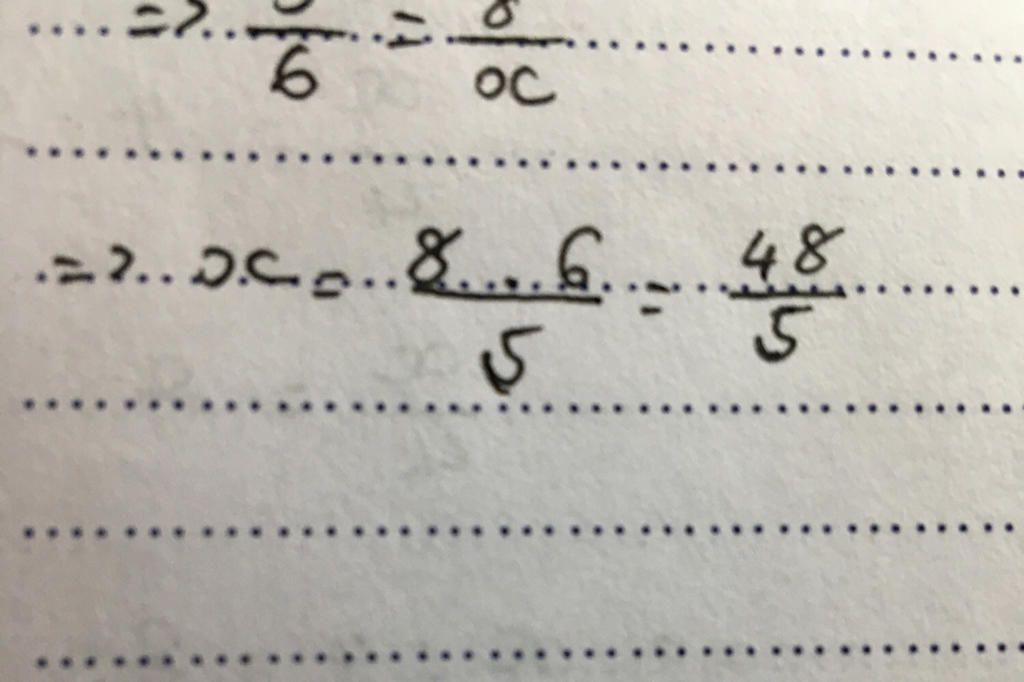 => 5/6 = 8/x
=> x = 8 . 6/5 = 48/5